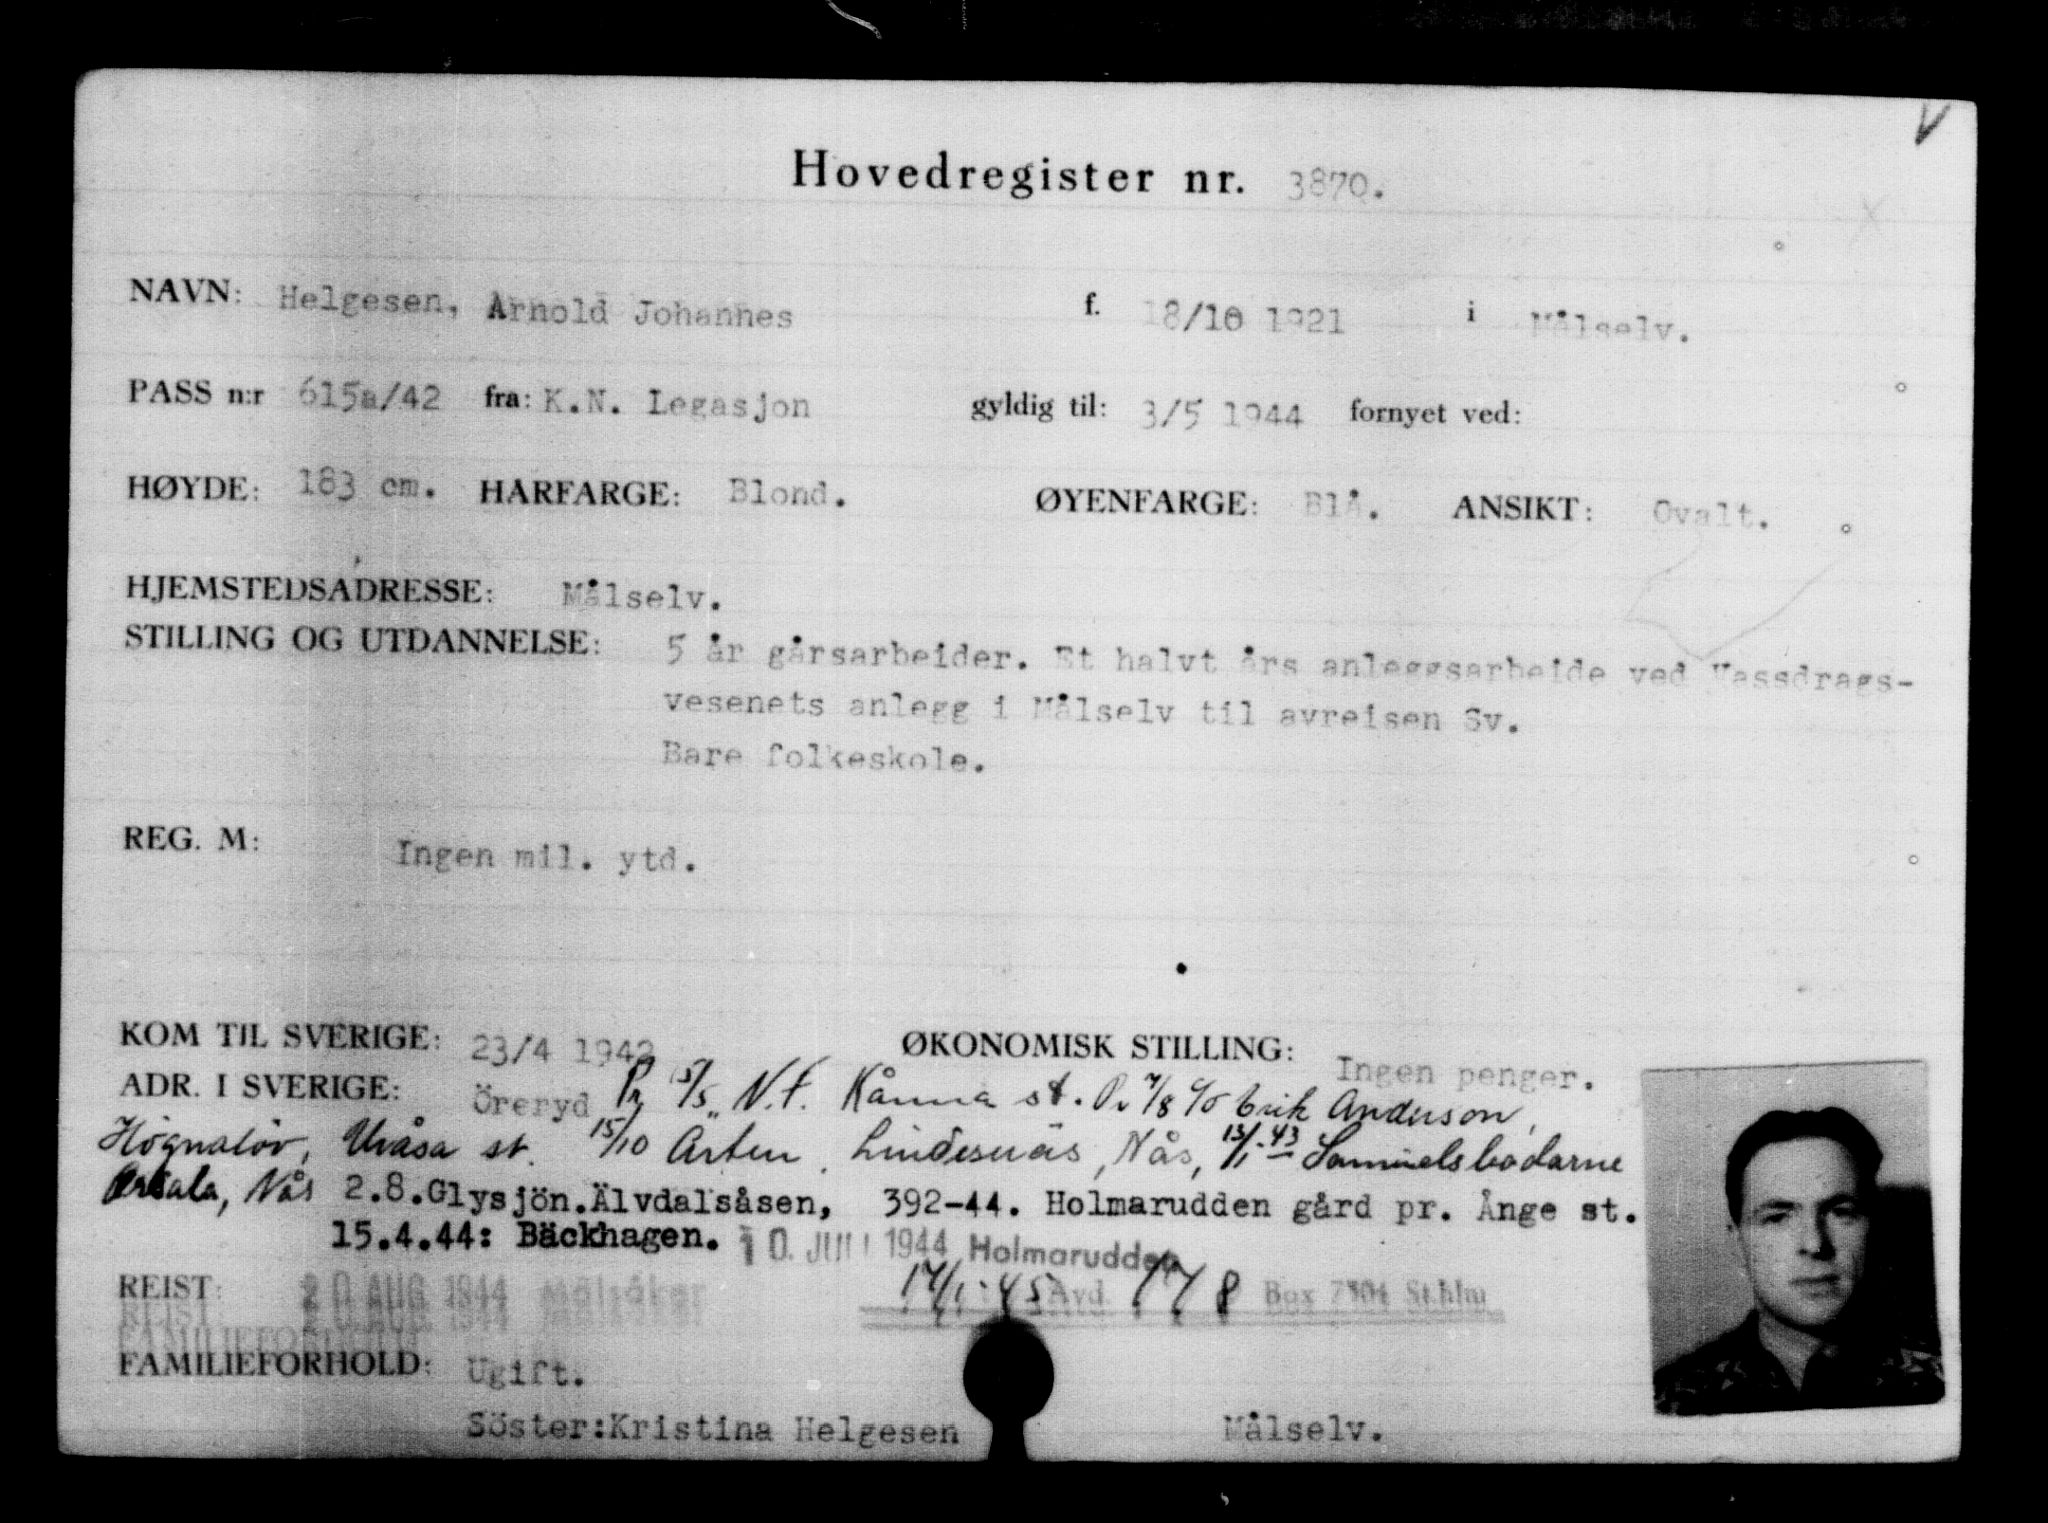 V
Hovedregister nr. 3870.
NAVN: Helgesen, Arnold Johannes f. 18/10 1921 i Målselv.
PASS n:r 615a/42 fra: K.N. Legasjon gyldig til: 3/5 1944 fornyet ved:
HØYDE: 183 cm. HARFARGE: Blond. ØYENFARGE: Blå. ANSIKT: Ovalt.
HJEMSTEDSADRESSE: Målselv.
STILLING OG UTDANNELSE: 5 år gårsarbeider. Et halvt års anleggsarbeide ved Vassdrags-
vesenets anlegg i Målselv til avreisen Sv.
Bare folkeskole.
REG. M: Ingen mil. ytd.
KOM TIL SVERIGE: 23/4 1942 ØKONOMISK STILLING: Ingen penger.
ADR. I SVERIGE: Öreryd N.F. Kånna st. 7/8 c/o Erik Anderson,
Högnalöv, Uråsa st. 15/10 Arten, Lindesnäs, Nås, 13/1-43 Samuelsbodarne
Nås 2.8.Glysjön.Älvdalsåsen, 392-44. Holmarudden gård pr. Ånge st.
15.4.44: Bäckhagen. 10. JULI 1944 Holmarudden
REIST: 20 AUG 1944 Mälsåker 17/1-45 Avd. 178 Box 7304 Sthlm
REIST 20 AUG 1944
FAMILIEFORHOLD
FAMILIEFORHOLD: Ugift.
Söster:Kristina Helgesen Målselv.